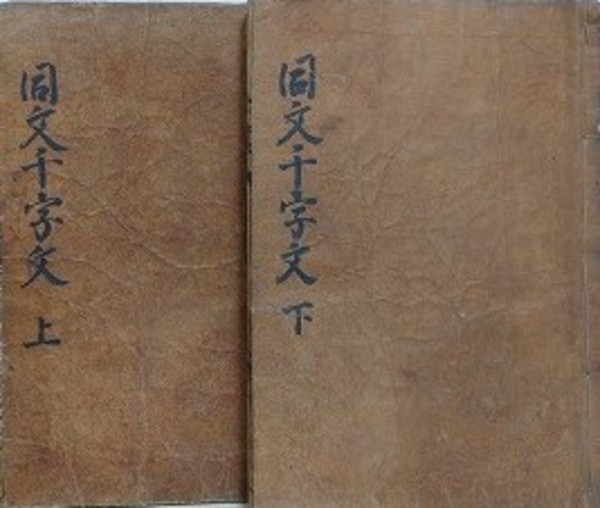 同文千字文 上
同文千字文 下